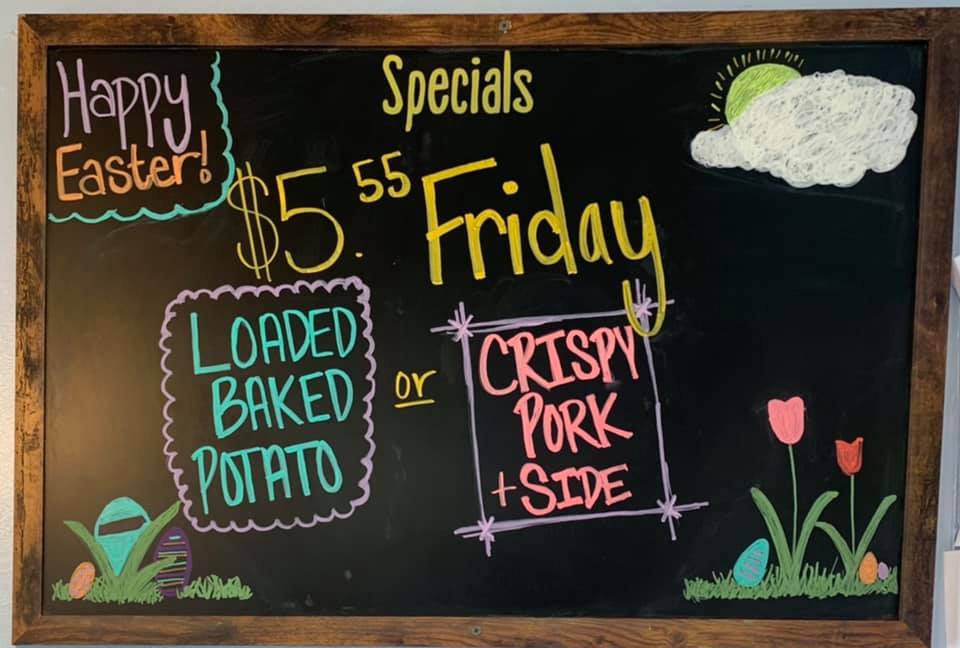 Happy
Easter!
Specials
$5.55 Friday
LOADED
BAKED
POTATO
or
CRISPY
PORK
+ SIDE